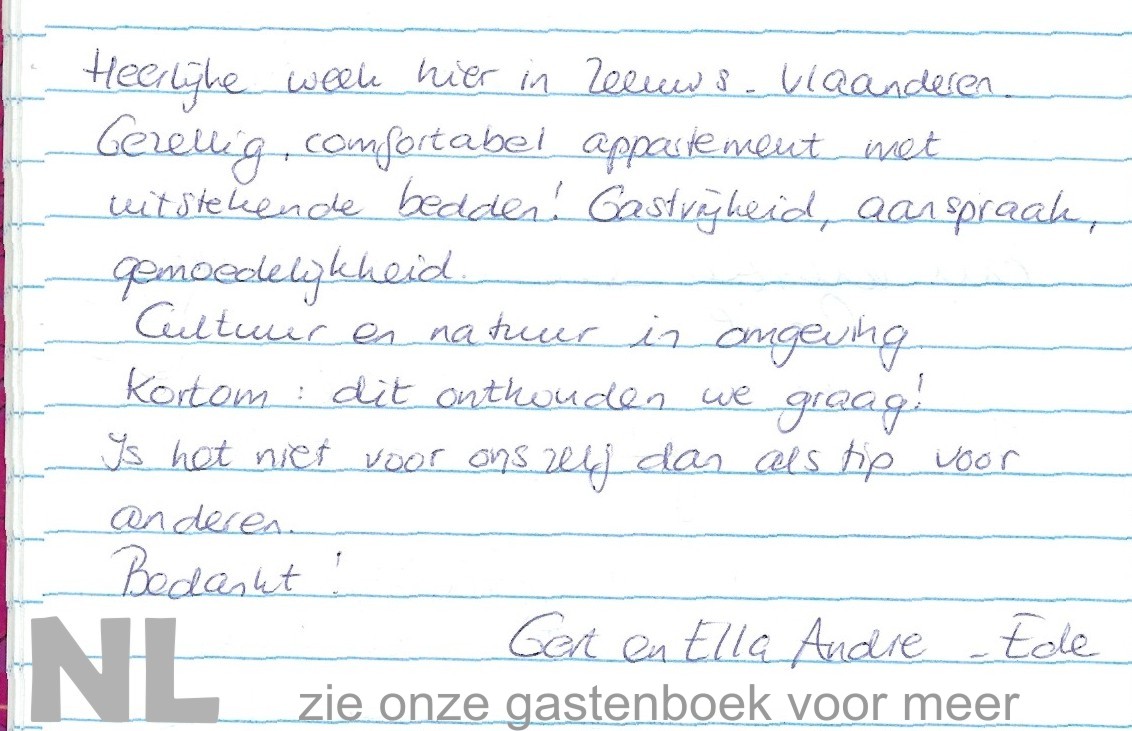 Heerlijke week hier in Zeeuws-Vlaanderen.
Gezellig, comfortabel appartement met
uitstekende bedden! Gastvrijheid, aanspraak,
gemoedelijkheid.
Cultuur en natuur in omgeving
Kortom: dit onthouden we graag!
Is het niet voor ons zelf dan als tip voor
anderen.
Bedankt!
Gert en Ella Andre - Ede
NL zie onze gastenboek voor meer